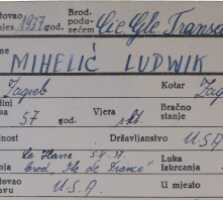 tovao
mjes. 1937 god.
Brod.
podu-
zećem Cie Gle Transa
me MIHELIĆ LUDWIK
Zagreb Kotar Zag
dini
sa 57 god. Vjera rkt Bračno
stanje
nost Državljanstvo USA
Le Havre Luka
Brod „Ile de France" Iskrcanja
tovao
avu U.S.A. U mjesto